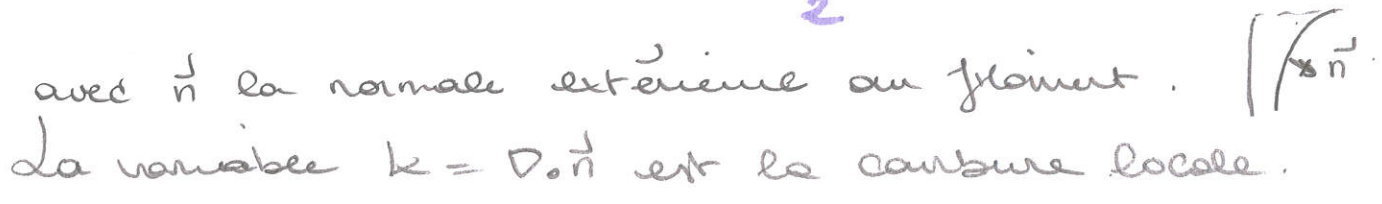 2
avec n⃗ la normale extérieure au front. n⃗
La variable k = ∇.n⃗ est la courbure locale.